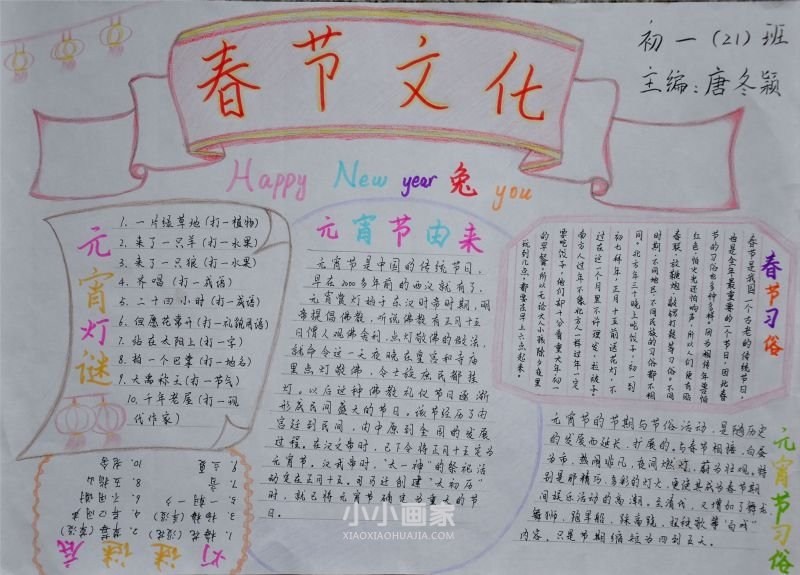 春节文化
初一(21)班
主编:唐冬颖
Happy New year 兔 you
元宵灯谜
1. 一片绿草地(打一植物)
2. 来了一只羊(打一水果)
3. 来了一只狼(打一水果)
4. 齐唱(打一成语)
5. 二十四小时(打一成语)
6. 但愿花常开(打一礼貌用语)
7. 站在太阳上(打一字)
8. 拍一个巴掌(打一地名)
9. 大禹称王(打一节气)
10. 千年老屋(打一现
代作家)
灯谜谜底
1. 梅花(没花)
2. 草莓(草没)
3. 杨梅(羊没)
4. 异口同声
6. 不用谢
8. 五指山
9. 立夏
10. 老舍
元宵节由来
元宵节是中国的传统节日,
早在2000多年前的西汉就有了,
元宵赏灯始于东汉明帝时期,明
帝提倡佛教,听说佛教有正月十五
日僧人观佛舍利,点灯敬佛的做法,
就命令这一天夜晚在皇宫和寺庙
里点灯敬佛,令士族庶民都挂
灯。以后这种佛教礼仪节日逐渐
形成民间盛大的节日。该节经历了由
宫廷到民间,由中原到全国的发展
过程。在汉文帝时,已下令将正月十五定为
元宵节。汉武帝时,“太一神”的祭祀活
动定在正月十五。司马迁创建“太初历”
时,就已将元宵节确定为重大的节
日。
春节习俗
春节是我国一个古老的传统节日,
也是全年最重要的一个节日,因此春
节的习俗也多种多样。因为相传年兽怕
红色、怕火光还怕响声,所以人们便有贴
春联、放鞭炮、敲锣打鼓等习俗。不同
时期、不同地区、不同民族的习俗都不相
同。北方年三十晚上吃饺子,初一到
初七拜年,正月十五前送花灯,不
过在这一个月里不许理发。拉被子
南方人过年不像北方人一样过年一定
要吃饺子,他们却十分看重大年初一
的早餐,所以无论大人小孩除夕夜里
玩到几点,都要在早上六点起来。
元宵节习俗
元宵节的节期与节俗活动,是随历史
的发展而延长、扩展的。与春节相接,白昼
为市,热闹非凡,夜间燃灯,蔚为壮观。特
别是那精巧、多彩的灯火,更使其成为春节期
间娱乐活动的高潮。至清代,又增加了舞龙、
舞狮、跑旱船、踩高跷、扭秧歌等“百戏”
内容,只是节期缩短为四到五天。
小小画家
XIAOXIAOHUAJIA.COM